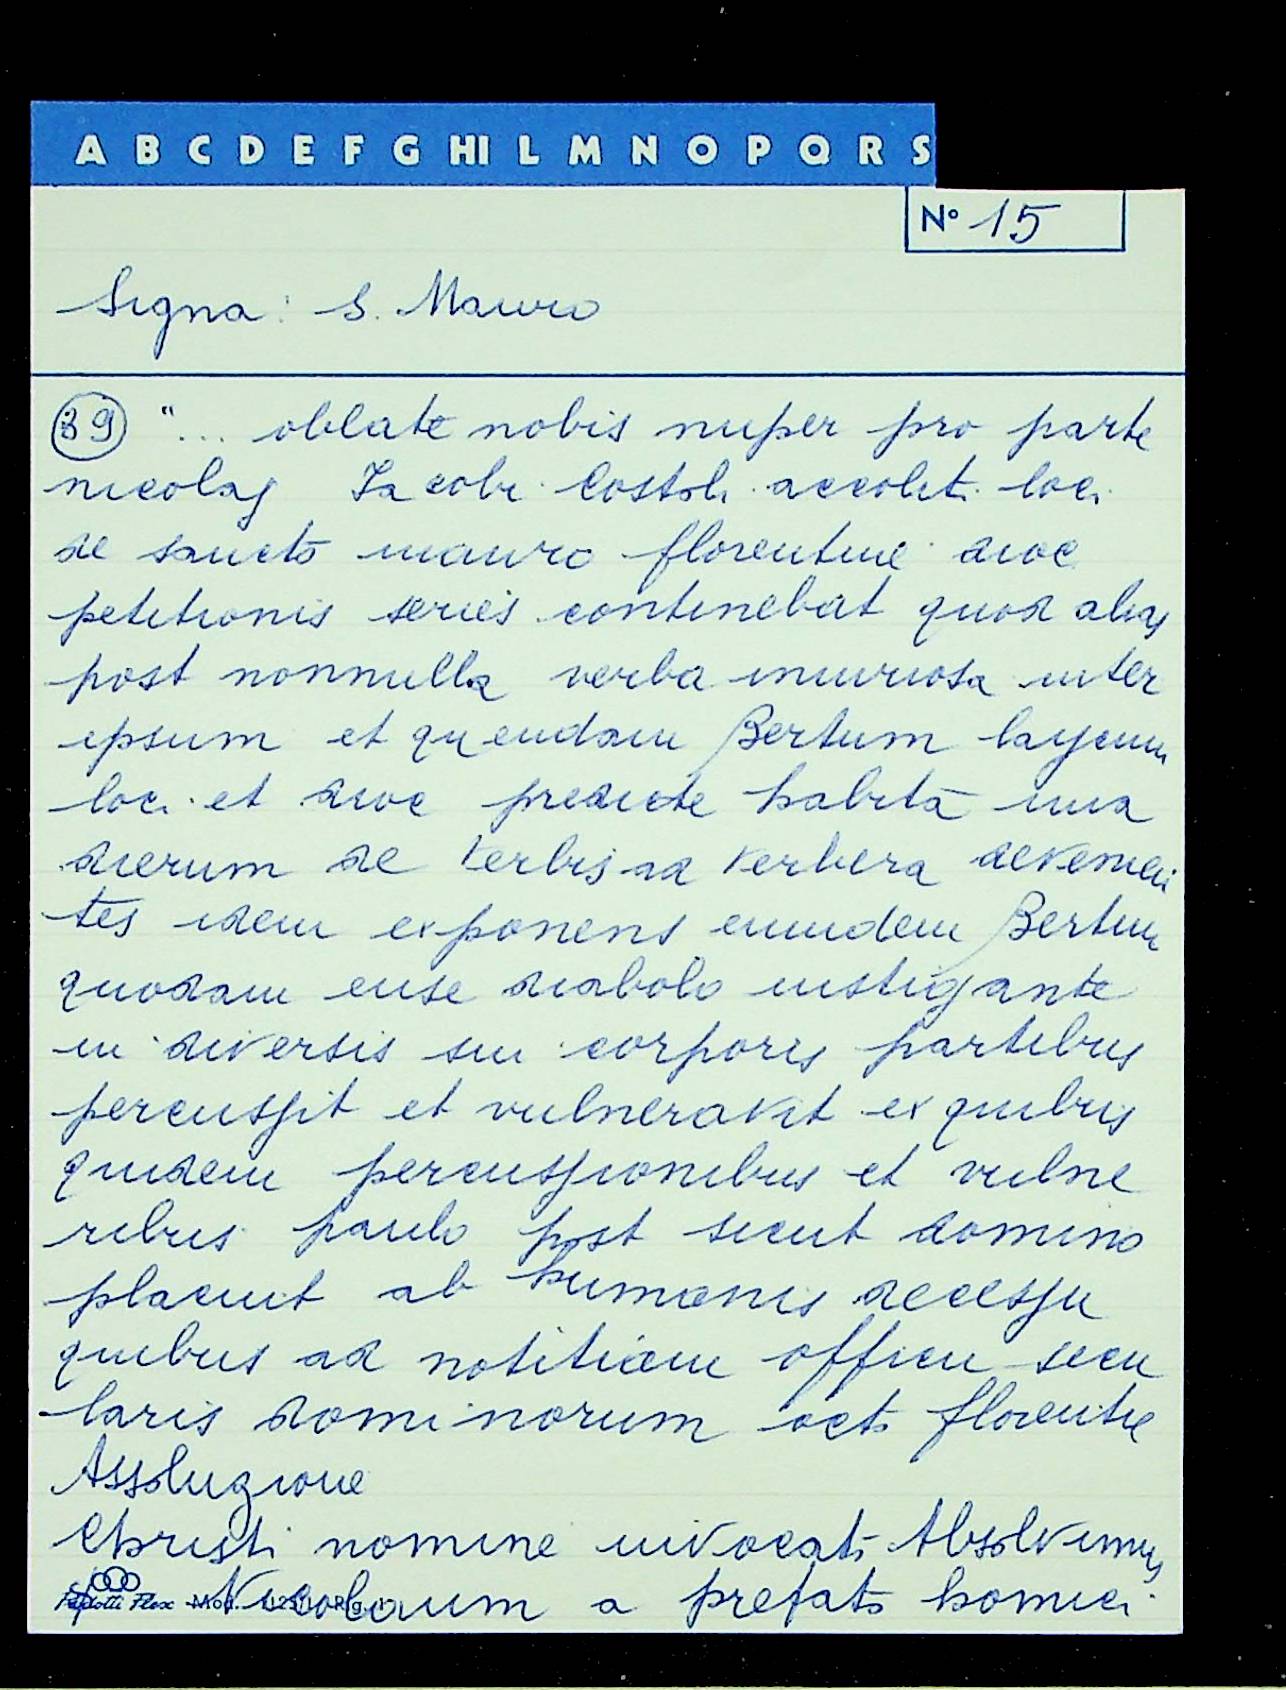 A B C D E F G HI L M N O P Q R S
N° 15
Signa: S. Mauro
39 "... oblate nobis nuper pro parte
nicolaj Jacobi Costoli accoliti loci
de sancto mauro florentine dioc
petitionis series continebat quod alias
post nonnulla verba iniuriosa inter
ipsum et quendam Bertum laycum
loci et dioc predicte habita una
dierum de verbis ad verbera devenien
tes idem exponens eumdem Bertum
quodam ense diabolo instigante
in diversis sui corporis partibus
percussit et vulneravit ex quibus
quidem percussionibus et vulne
ribus paulo post sicut domino
placuit ab humanis decessit
quibus ad notitiam officii secu
laris dominorum octo florentie
Assoluzione
Christi nomine invocato Absolvimus
Nicolaum a prefato homici